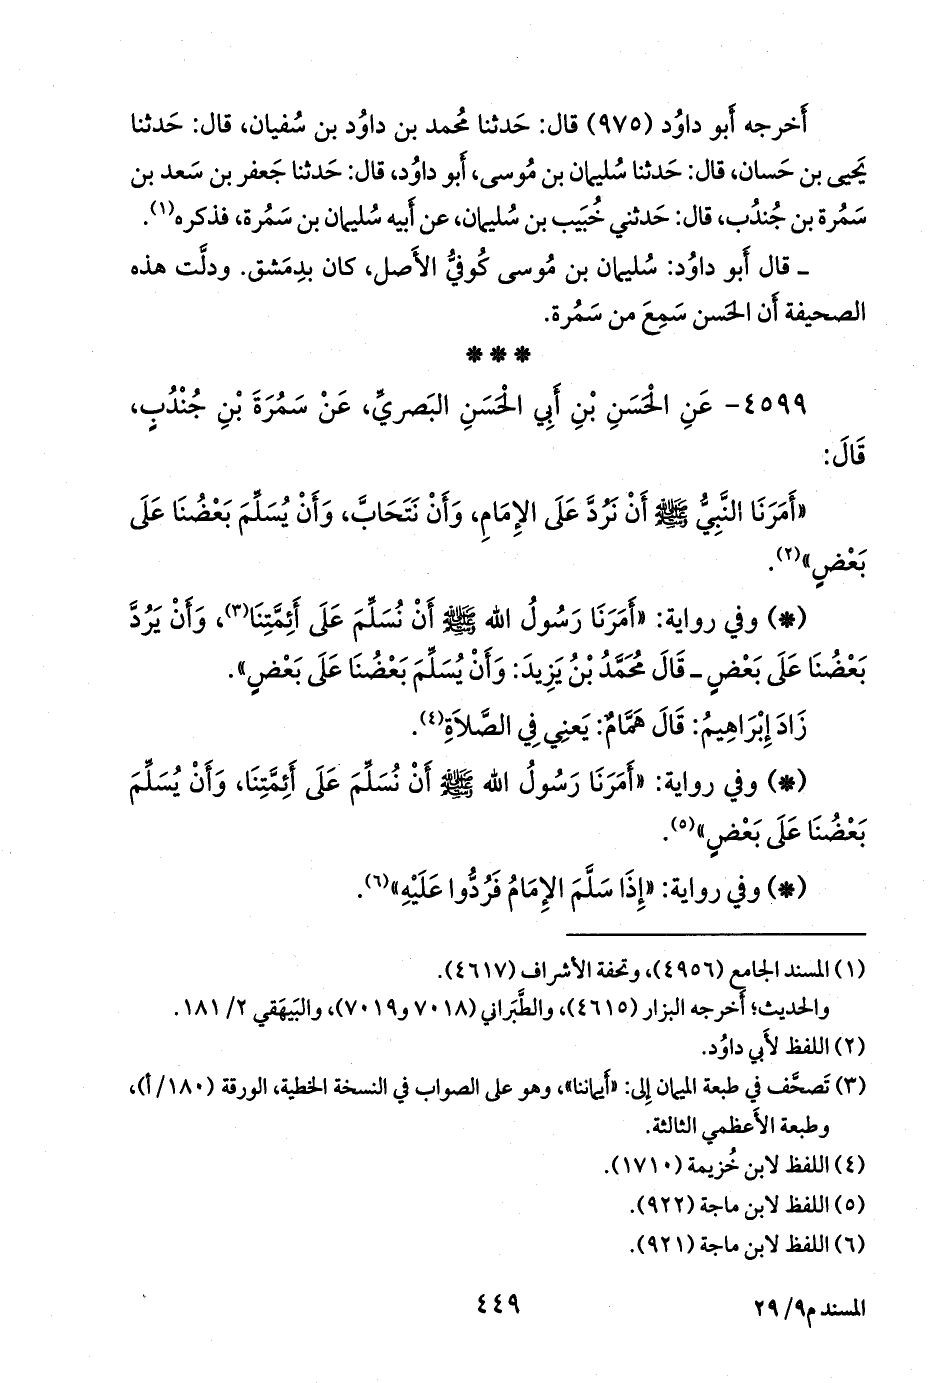 أَخرجه أَبو داوُد (٩٧٥) قال: حَدثنا مُحمد بن داوُد بن سُفيان، قال: حَدثنا
يَحيى بن حَسان، قال: حَدثنا سُليمان بن مُوسى، أَبو داوُد، قال: حَدثنا جَعفر بن سَعد بن
سَمُرة بن جُندُب، قال: حَدثني خُبَيب بن سُليمان، عن أَبيه سُليمان بن سَمُرة، فذكره(١).
ـ قال أَبو داوُد: سُليمان بن مُوسى كُوفيُّ الأَصل، كان بدِمَشق. ودلَّت هذه
الصحيفة أَن الحَسن سَمِعَ من سَمُرة.
***
٤٥٩٩- عَنِ الْحَسَنِ بْنِ أَبِي الْحَسَنِ البَصريِّ، عَنْ سَمُرَةَ بْنِ جُنْدُبٍ،
قَالَ:
«أَمَرَنَا النَّبِيُّ ﷺ أَنْ نَرُدَّ عَلَى الإِمَامِ، وَأَنْ نَتَحَابَّ، وَأَنْ يُسَلِّمَ بَعْضُنَا عَلَى
بَعْضٍ»(٢).
(*) وفي رواية: «أَمَرَنَا رَسُولُ الله ﷺ أَنْ نُسَلِّمَ عَلَى أَئِمَّتِنَا(٣)، وَأَنْ يَرُدَّ
بَعْضُنَا عَلَى بَعْضٍ ـ قَالَ مُحَمَّدُ بْنُ يَزِيدَ: وَأَنْ يُسَلِّمَ بَعْضُنَا عَلَى بَعْضٍ».
زَادَ إِبْرَاهِيمُ: قَالَ هَمَّامٌ: يَعنِي فِي الصَّلاَةِ(٤).
(*) وفي رواية: «أَمَرَنَا رَسُولُ الله ﷺ أَنْ نُسَلِّمَ عَلَى أَئِمَّتِنَا، وَأَنْ يُسَلِّمَ
بَعْضُنَا عَلَى بَعْضٍ»(٥).
(*) وفي رواية: «إِذَا سَلَّمَ الإِمَامُ فَرُدُّوا عَلَيْهِ»(٦).
(١) المسند الجامع (٤٩٥٦)، وتحفة الأشراف (٤٦١٧).
والحديث؛ أَخرجه البزار (٤٦١٥)، والطَّبَراني (٧٠١٨ و٧٠١٩)، والبَيهَقي ٢/ ١٨١.
(٢) اللفظ لأَبي داوُد.
(٣) تَصحَّف في طبعة الميمان إِلى: «أَيماننا»، وهو على الصواب في النسخة الخطية، الورقة (١٨٠/أ)،
وطبعة الأَعظمي الثالثة.
(٤) اللفظ لابن خُزيمة (١٧١٠).
(٥) اللفظ لابن ماجة (٩٢٢).
(٦) اللفظ لابن ماجة (٩٢١).
المسند م٩/ ٢٩
٤٤٩